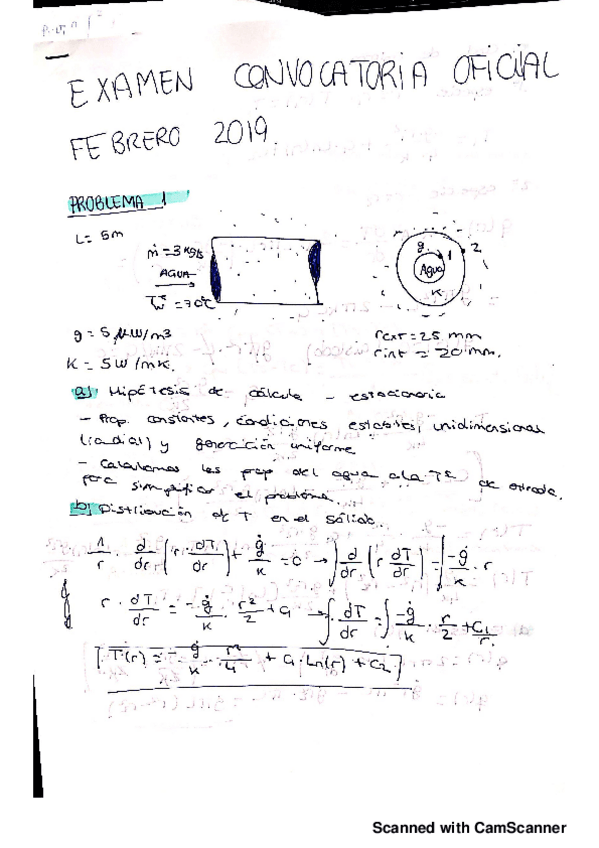 EXAMEN CONVOCATORIA OFICIAL
FEBRERO 2019.
PROBLEMA 1
L= 5m
ṁ = 3 kg/s
AGUA
= 70°C
g 1 2
Agua
K
g = 5 MW/m3
K = 5W/mK.
rext = 25 mm
rint = 20 mm.
a) Hipótesis de cálculo - estacionaria
- Prop. constantes, condiciones estables, unidimensional
(radial) y generación uniforme
- Calculamos las prop del agua a la Tª de entrada.
para simplificar el problema.
b) Distribución de T en el sólido.
1/r · d/dr (r · dT/dr) + ġ/k = 0 → ∫ d/dr (r dT/dr) = ∫ -ġ/k · r
r · dT/dr = -ġ/k · r²/2 + C1 → ∫ dT/dr = ∫ -ġ/k · r/2 + C1/r
T(r) = -ġ/k · r²/4 + C1 · Ln(r) + C2
Scanned with CamScanner